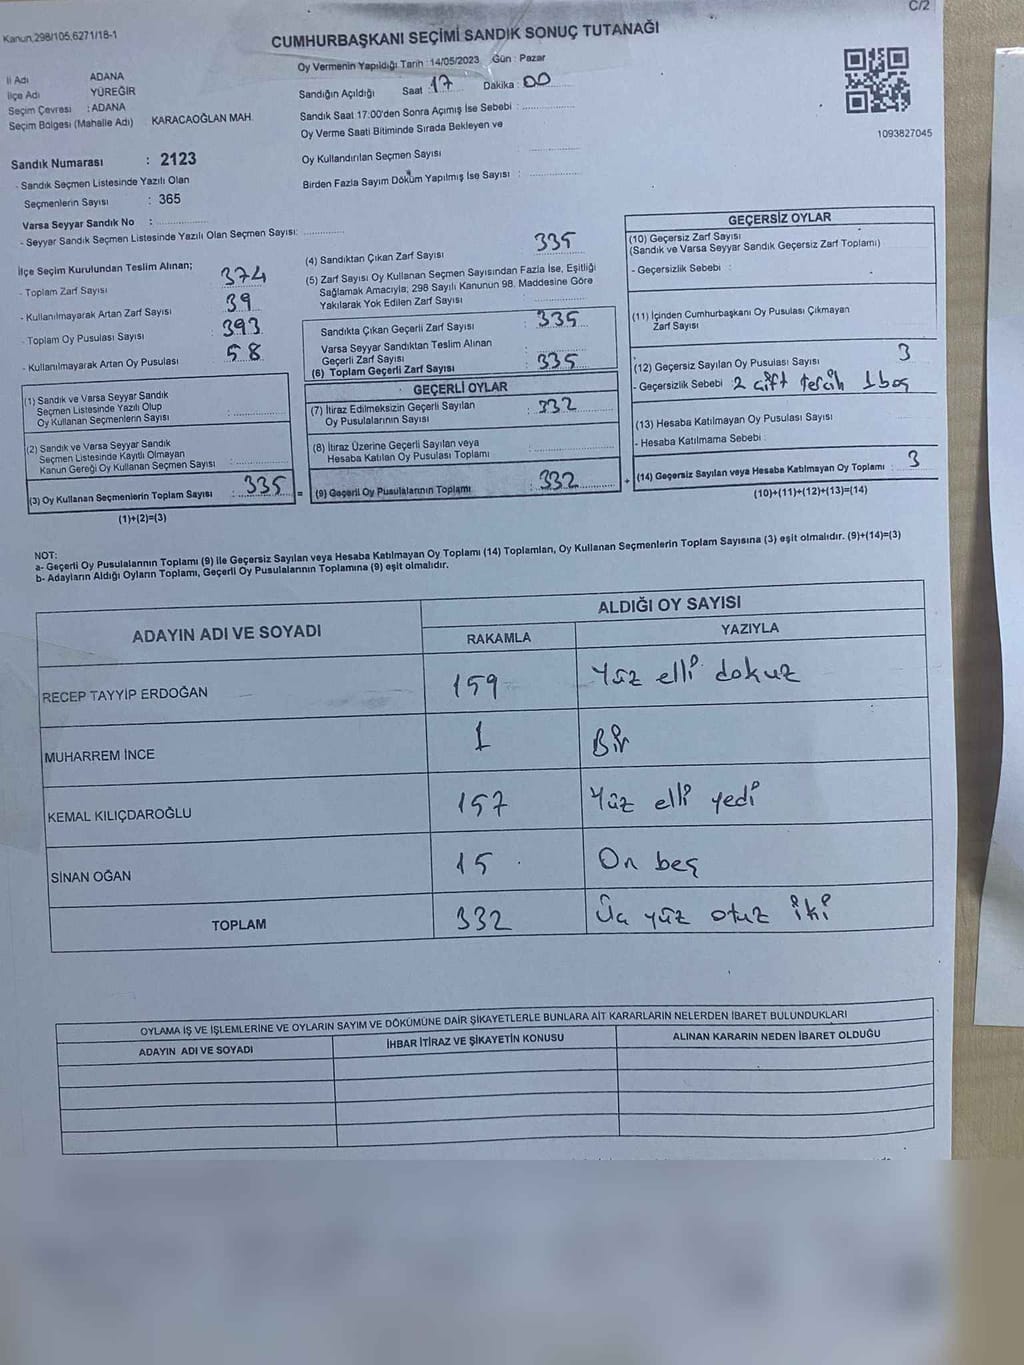 C/2
Kanun.298/105,6271/18-1
CUMHURBAŞKANI SEÇİMİ SANDIK SONUÇ TUTANAĞI
Oy Vermenin Yapıldığı Tarih : 14/05/2023 Gün : Pazar
İl Adı ADANA
İlçe Adı YÜREĞİR
Seçim Çevresi : ADANA
Seçim Bölgesi (Mahalle Adı) KARACAOĞLAN MAH.
Sandığın Açıldığı Saat : 17 Dakika : 00
Sandık Saat 17:00'den Sonra Açımış İse Sebebi :
Oy Verme Saati Bitiminde Sırada Bekleyen ve
Oy Kullandırılan Seçmen Sayısı :
Birden Fazla Sayım Döküm Yapılmış İse Sayısı :
1093827045
Sandık Numarası : 2123
- Sandık Seçmen Listesinde Yazılı Olan
Seçmenlerin Sayısı : 365
Varsa Seyyar Sandık No :
- Seyyar Sandık Seçmen Listesinde Yazılı Olan Seçmen Sayısı:
İlçe Seçim Kurulundan Teslim Alınan;
- Toplam Zarf Sayısı 374
- Kullanılmayarak Artan Zarf Sayısı 39
- Toplam Oy Pusulası Sayısı 393
- Kullanılmayarak Artan Oy Pusulası 58
(1) Sandık ve Varsa Seyyar Sandık
Seçmen Listesinde Yazılı Olup
Oy Kullanan Seçmenlerin Sayısı :
(2) Sandık ve Varsa Seyyar Sandık
Seçmen Listesinde Kayıtlı Olmayan
Kanun Gereği Oy Kullanan Seçmen Sayısı :
(3) Oy Kullanan Seçmenlerin Toplam Sayısı : 335 =
(1)+(2)=(3)
(4) Sandıktan Çıkan Zarf Sayısı 335
(5) Zarf Sayısı Oy Kullanan Seçmen Sayısından Fazla İse, Eşitliği
Sağlamak Amacıyla; 298 Sayılı Kanunun 98. Maddesine Göre
Yakılarak Yok Edilen Zarf Sayısı :
Sandıkta Çıkan Geçerli Zarf Sayısı : 335
Varsa Seyyar Sandıktan Teslim Alınan
Geçerli Zarf Sayısı :
(6) Toplam Geçerli Zarf Sayısı : 335
GEÇERLİ OYLAR
(7) İtiraz Edilmeksizin Geçerli Sayılan
Oy Pusulalarının Sayısı : 332
(8) İtiraz Üzerine Geçerli Sayılan veya
Hesaba Katılan Oy Pusulası Toplamı :
(9) Geçerli Oy Pusulalarının Toplamı : 332 +
GEÇERSİZ OYLAR
(10) Geçersiz Zarf Sayısı
(Sandık ve Varsa Seyyar Sandık Geçersiz Zarf Toplamı)
- Geçersizlik Sebebi :
(11) İçinden Cumhurbaşkanı Oy Pusulası Çıkmayan
Zarf Sayısı
(12) Geçersiz Sayılan Oy Pusulası Sayısı 3
- Geçersizlik Sebebi 2 çift tercih 1 boş
(13) Hesaba Katılmayan Oy Pusulası Sayısı
- Hesaba Katılmama Sebebi :
(14) Geçersiz Sayılan veya Hesaba Katılmayan Oy Toplamı : 3
(10)+(11)+(12)+(13)=(14)
NOT:
a- Geçerli Oy Pusulalarının Toplamı (9) ile Geçersiz Sayılan veya Hesaba Katılmayan Oy Toplamı (14) Toplamları, Oy Kullanan Seçmenlerin Toplam Sayısına (3) eşit olmalıdır. (9)+(14)=(3)
b- Adayların Aldığı Oyların Toplamı, Geçerli Oy Pusulalarının Toplamına (9) eşit olmalıdır.
ADAYIN ADI VE SOYADI ALDIĞI OY SAYISI
RAKAMLA YAZIYLA
RECEP TAYYİP ERDOĞAN 159 Yüz elli dokuz
MUHARREM İNCE 1 Bir
KEMAL KILIÇDAROĞLU 157 Yüz elli yedi
SİNAN OĞAN 15 On beş
TOPLAM 332 Üç yüz otuz iki
OYLAMA İŞ VE İŞLEMLERİNE VE OYLARIN SAYIM VE DÖKÜMÜNE DAİR ŞİKAYETLERLE BUNLARA AİT KARARLARIN NELERDEN İBARET BULUNDUKLARI
ADAYIN ADI VE SOYADI İHBAR İTİRAZ VE ŞİKAYETİN KONUSU ALINAN KARARIN NEDEN İBARET OLDUĞU